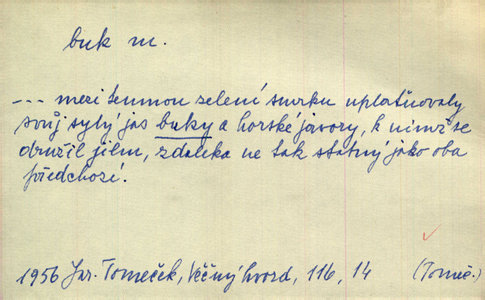 buk m.
--- mezi temnou zelení smrku uplatňovaly
svůj sytý jas buky a horské javory, k nimž se
družil jilm, zdaleka ne tak statný jako oba
předchozí.
1956 Jar. Tomeček, Věčný hvozd, 116, 14 (Tomeč.)